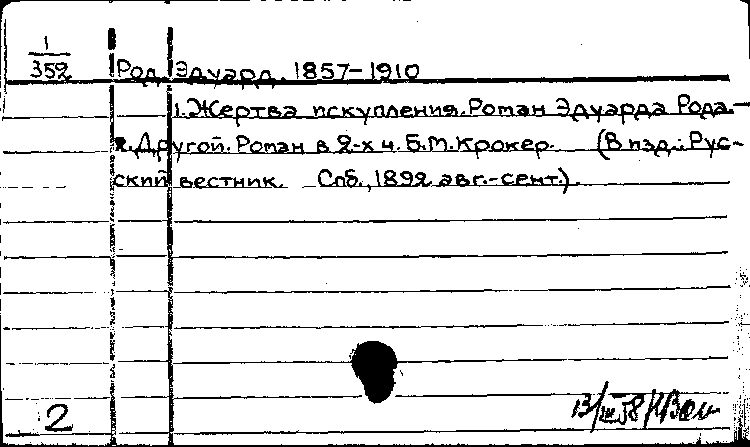 1
352
Род, Эдуард. 1857-1910
1. Жертва искупления. Роман Эдуарда Рода.—
2. Другой. Роман в 2-х ч. Б.М. Крокер. (В изд.: Рус-
ский вестник. Спб., 1892 авг.-сент.)
2
13/III 58